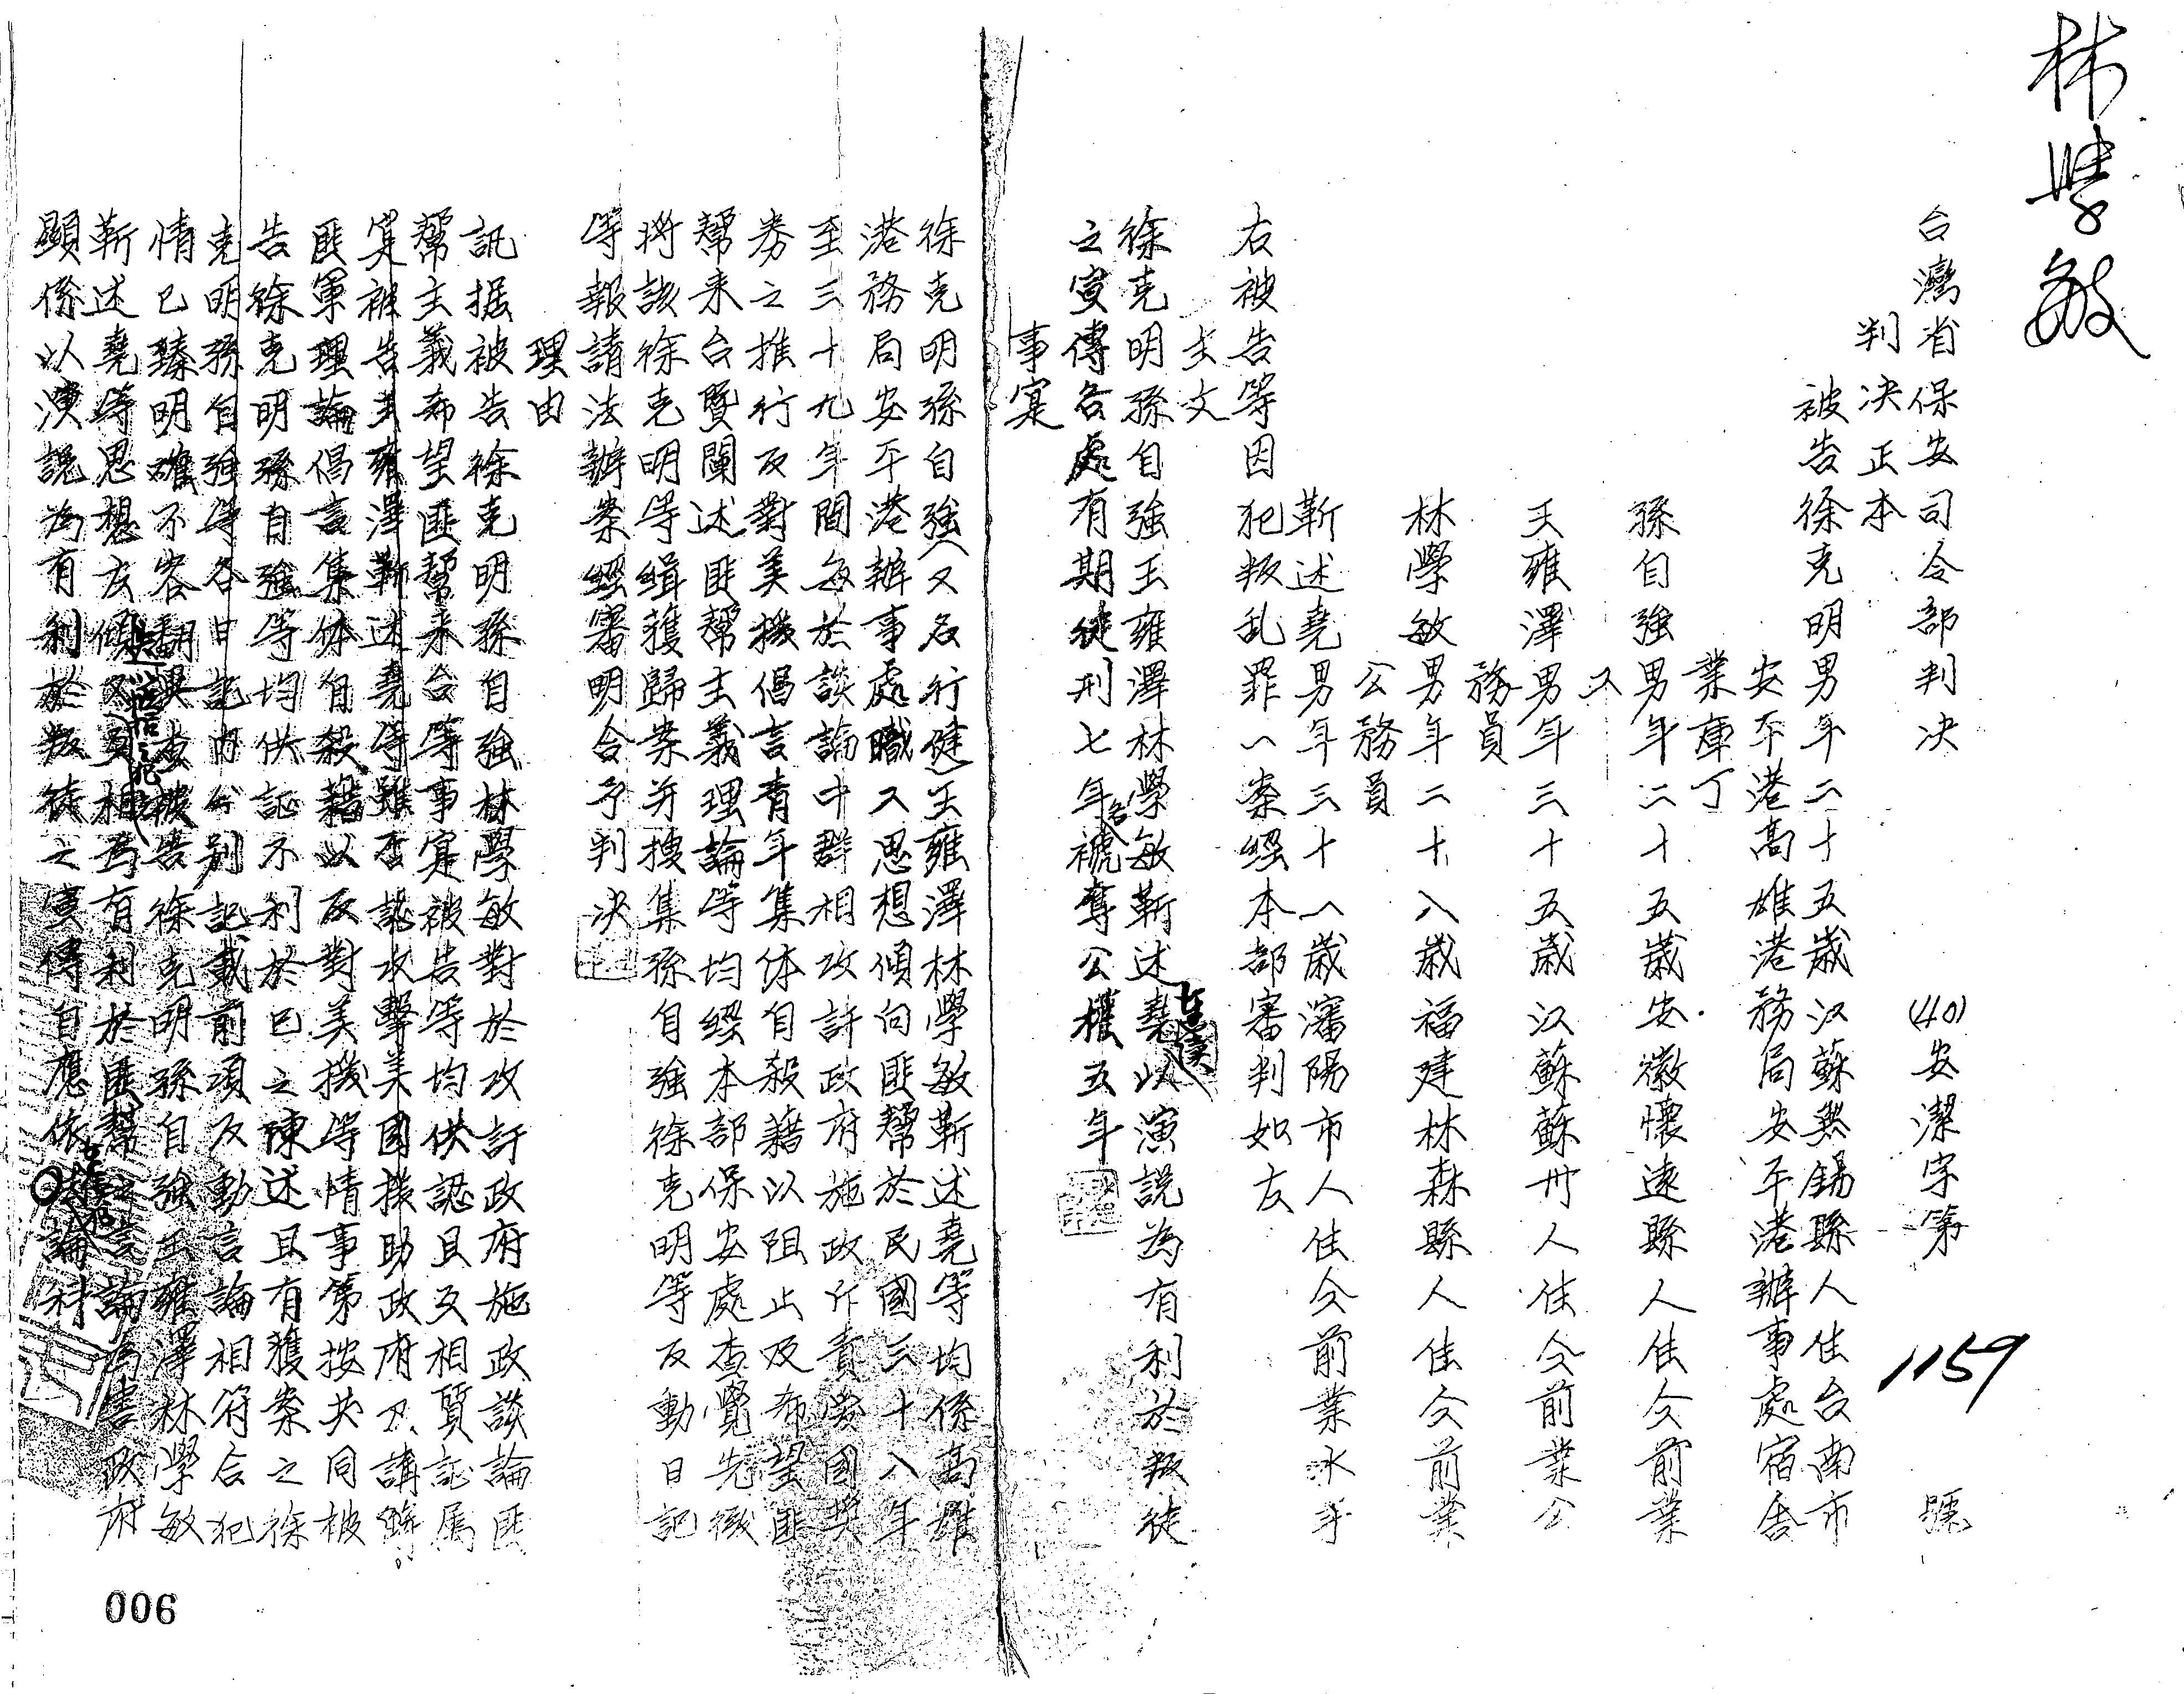 林學敏
台灣省保安司令部判决
(40)安潔字第1159號
判决正本
被告徐克明男年二十五歲江蘇無錫縣人住台南市
安平港高雄港務局安平港辦事處宿舍
業庫丁
孫自強男年二十五歲安徽懷遠縣人住仝前業
仝
王雍澤男年三十五歲江蘇蘇州人住仝前業公
務員
林學敏男年二十八歲福建林森縣人住仝前業
公務員
靳述堯男年三十八歲瀋陽市人住仝前業水手
右被告等因犯叛乱罪一案經本部審判如左
主文
徐克明孫自強王雍澤林學敏靳述堯連續以演說為有利於叛徒
之宣傳各處有期徒刑七年各褫奪公權五年
事實
徐克明孫自強(又名行健)王雍澤林學敏靳述堯等均係高雄
港務局安平港辦事處職工思想傾向匪幫於民國三十八年
至三十九年間每於談論中群相攻訐政府施政斥責勞國獎
券之推行反對美機倡言青年集体自殺藉以阻止及希望匪
幫来台暨闡述匪幫主義理論等均經本部保安處查覺先後
將該徐克明等緝獲歸案并搜集孫自強徐克明等反動日記
等報請法辦業經審明合予判决
理由
訊据被告徐克明孫自強林學敏對於攻訐政府施政談論匪
幫主義希望匪幫来台等事實被告等均供認且互相質証属
實被告王雍澤靳述堯等雖否認水擊美國援助政府及講解
匪軍理論倡言集体自殺藉以反對美機等情事第按共同被
告徐克明孫自強等均供証不利於己之陳述且有獲案之徐
克明孫自強等各日記內分別記載前項反動言論相符合犯
情已臻明確不容翻異查被告徐克明孫自強王雍澤林學敏
靳述堯等思想左傾又互相為有利於匪幫之言論為害政府
顯係以演說為有利於叛徒之宣傳自應依法論科
006